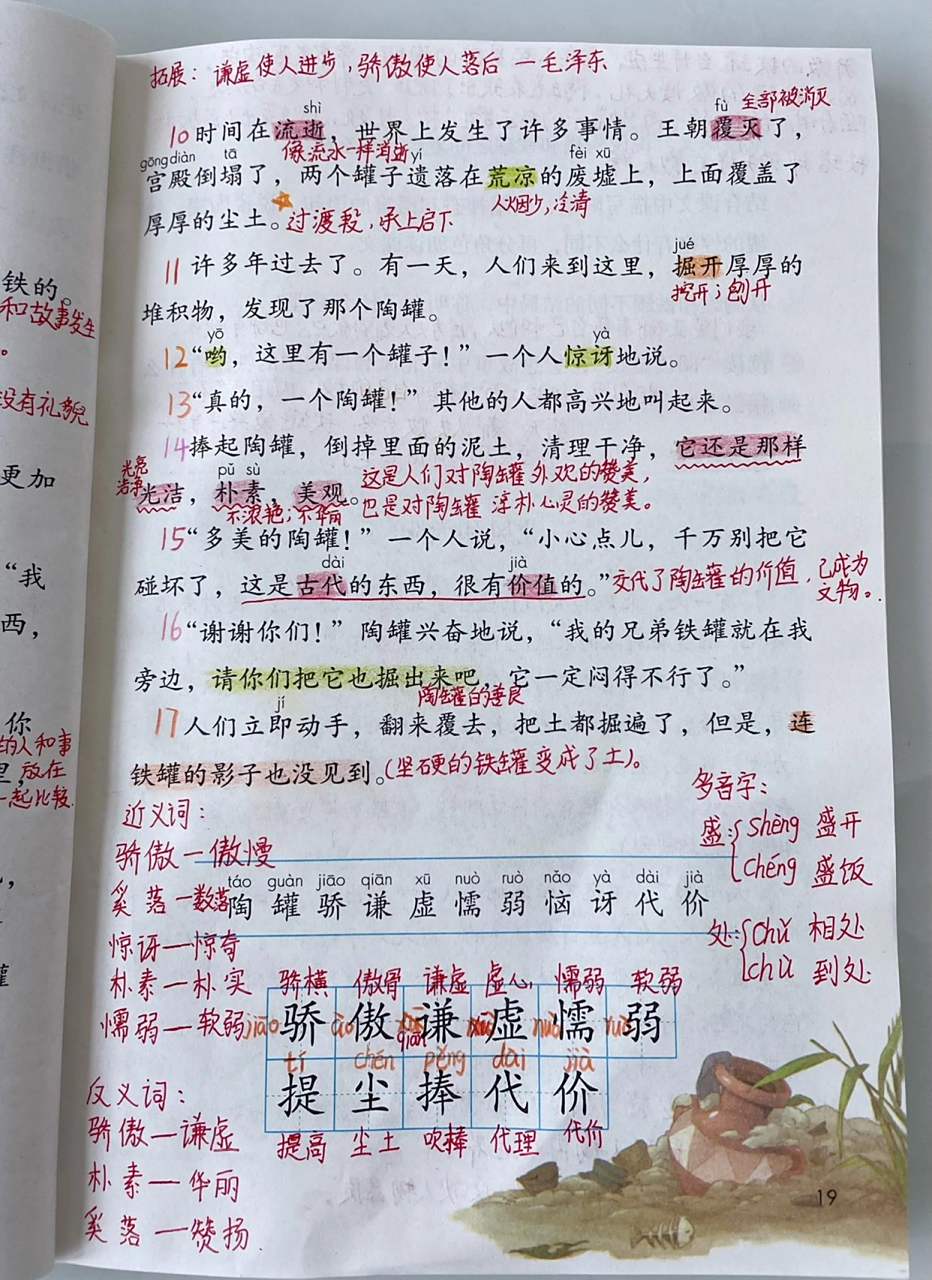 拓展：谦虚使人进步，骄傲使人落后 一毛泽东
全部被消灭
shì fù
10时间在流逝，世界上发生了许多事情。王朝覆灭了，
像流水一样消逝
gōng diàn tā yí fèi xū
宫殿倒塌了，两个罐子遗落在荒凉的废墟上，上面覆盖了
人烟少，冷清
厚厚的尘土。过渡段，承上启下
jué
11许多年过去了。有一天，人们来到这里，掘开厚厚的
挖开；刨开
堆积物，发现了那个陶罐。
yō yà
12“哟，这里有一个罐子！”一个人惊讶地说。
13“真的，一个陶罐！”其他的人都高兴地叫起来。
14捧起陶罐，倒掉里面的泥土，清理干净，它还是那样
光亮
洁净
pǔ sù
光洁，朴素，美观。
不浓艳；不华丽
这是人们对陶罐外观的赞美，
也是对陶罐淳朴心灵的赞美。
15“多美的陶罐！”一个人说，“小心点儿，千万别把它
dài jià
碰坏了，这是古代的东西，很有价值的。”交代了陶罐的价值，已成为
文物。
16“谢谢你们！”陶罐兴奋地说，“我的兄弟铁罐就在我
旁边，请你们把它也掘出来吧，它一定闷得不行了。”
陶罐的善良
jí
17人们立即动手，翻来覆去，把土都掘遍了，但是，连
铁罐的影子也没见到。（坚硬的铁罐变成了土）。
多音字：
盛：shèng 盛开
chéng 盛饭
处：chǔ 相处
chù 到处
近义词：
骄傲一傲慢
奚落一数落
惊讶一惊奇
朴素一朴实
懦弱一软弱
táo guàn jiāo qiān xū nuò ruò nǎo yà dài jià
陶罐骄谦虚懦弱恼讶代价
骄横 傲骨 谦虚 虚心 懦弱 软弱
jiāo骄 ào傲 qiān谦 虚 nuò懦 ruò弱
tí chén pěng dài jià
提尘捧代价
提高 尘土 吹捧 代理 代价
反义词：
骄傲一谦虚
朴素一华丽
奚落一赞扬
19
铁的。
和故事发生
。
没有礼貌
更加
“我
西，
你
的人和事
里，放在
一起比较